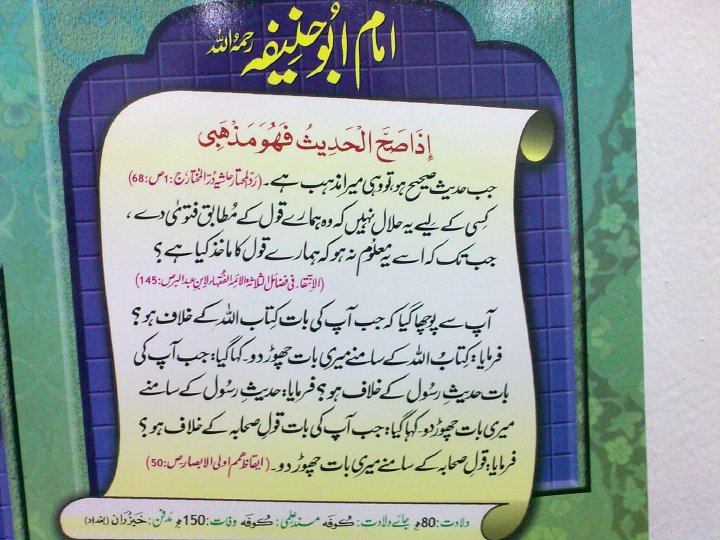 امام ابُوحنِیفہ رحمہُ اللہ
إِذَا صَحَّ الْحَدِيثُ فَهُوَ مَذْهَبِي
جب حدیث صحیح ہو، تو وہی میرا مذہب ہے۔ (ردّ المختار حاشیہ دُرّ المختار ج:1 ص:68)
کِسی کے لیے یہ حلال نہیں کہ وہ ہمارے قول کے مُطابق فتویٰ دے،
جب تک کہ اسے یہ معلُوم نہ ہو کہ ہمارے قول کا ماخذ کیا ہے؟
(الانتقاء فی فضائل الثلاثۃ الائمۃ الفقہاء لابن عبدالبر ص:145)
آپ سے پوچھا گیا کہ جب آپ کی بات کِتابُ اللہ کے خلاف ہو؟
فرمایا: کِتابُ اللہ کے سامنے میری بات چھوڑ دو۔ کہا گیا: جب آپ کی
بات حدیثِ رسُول کے خلاف ہو؟ فرمایا: حدیثِ رسُول کے سامنے
میری بات چھوڑ دو۔ کہا گیا: جب آپ کی بات قولِ صحابہ کے خلاف ہو؟
فرمایا: قولِ صحابہ کے سامنے میری بات چھوڑ دو۔ (ایقاظ ھمم اولی الابصار ص:50)
ولادت: 80ھ جائے ولادت: کُوفہ مسندِ علمی: کُوفہ وفات: 150ھ مدفن: خَیزُران (بغداد)